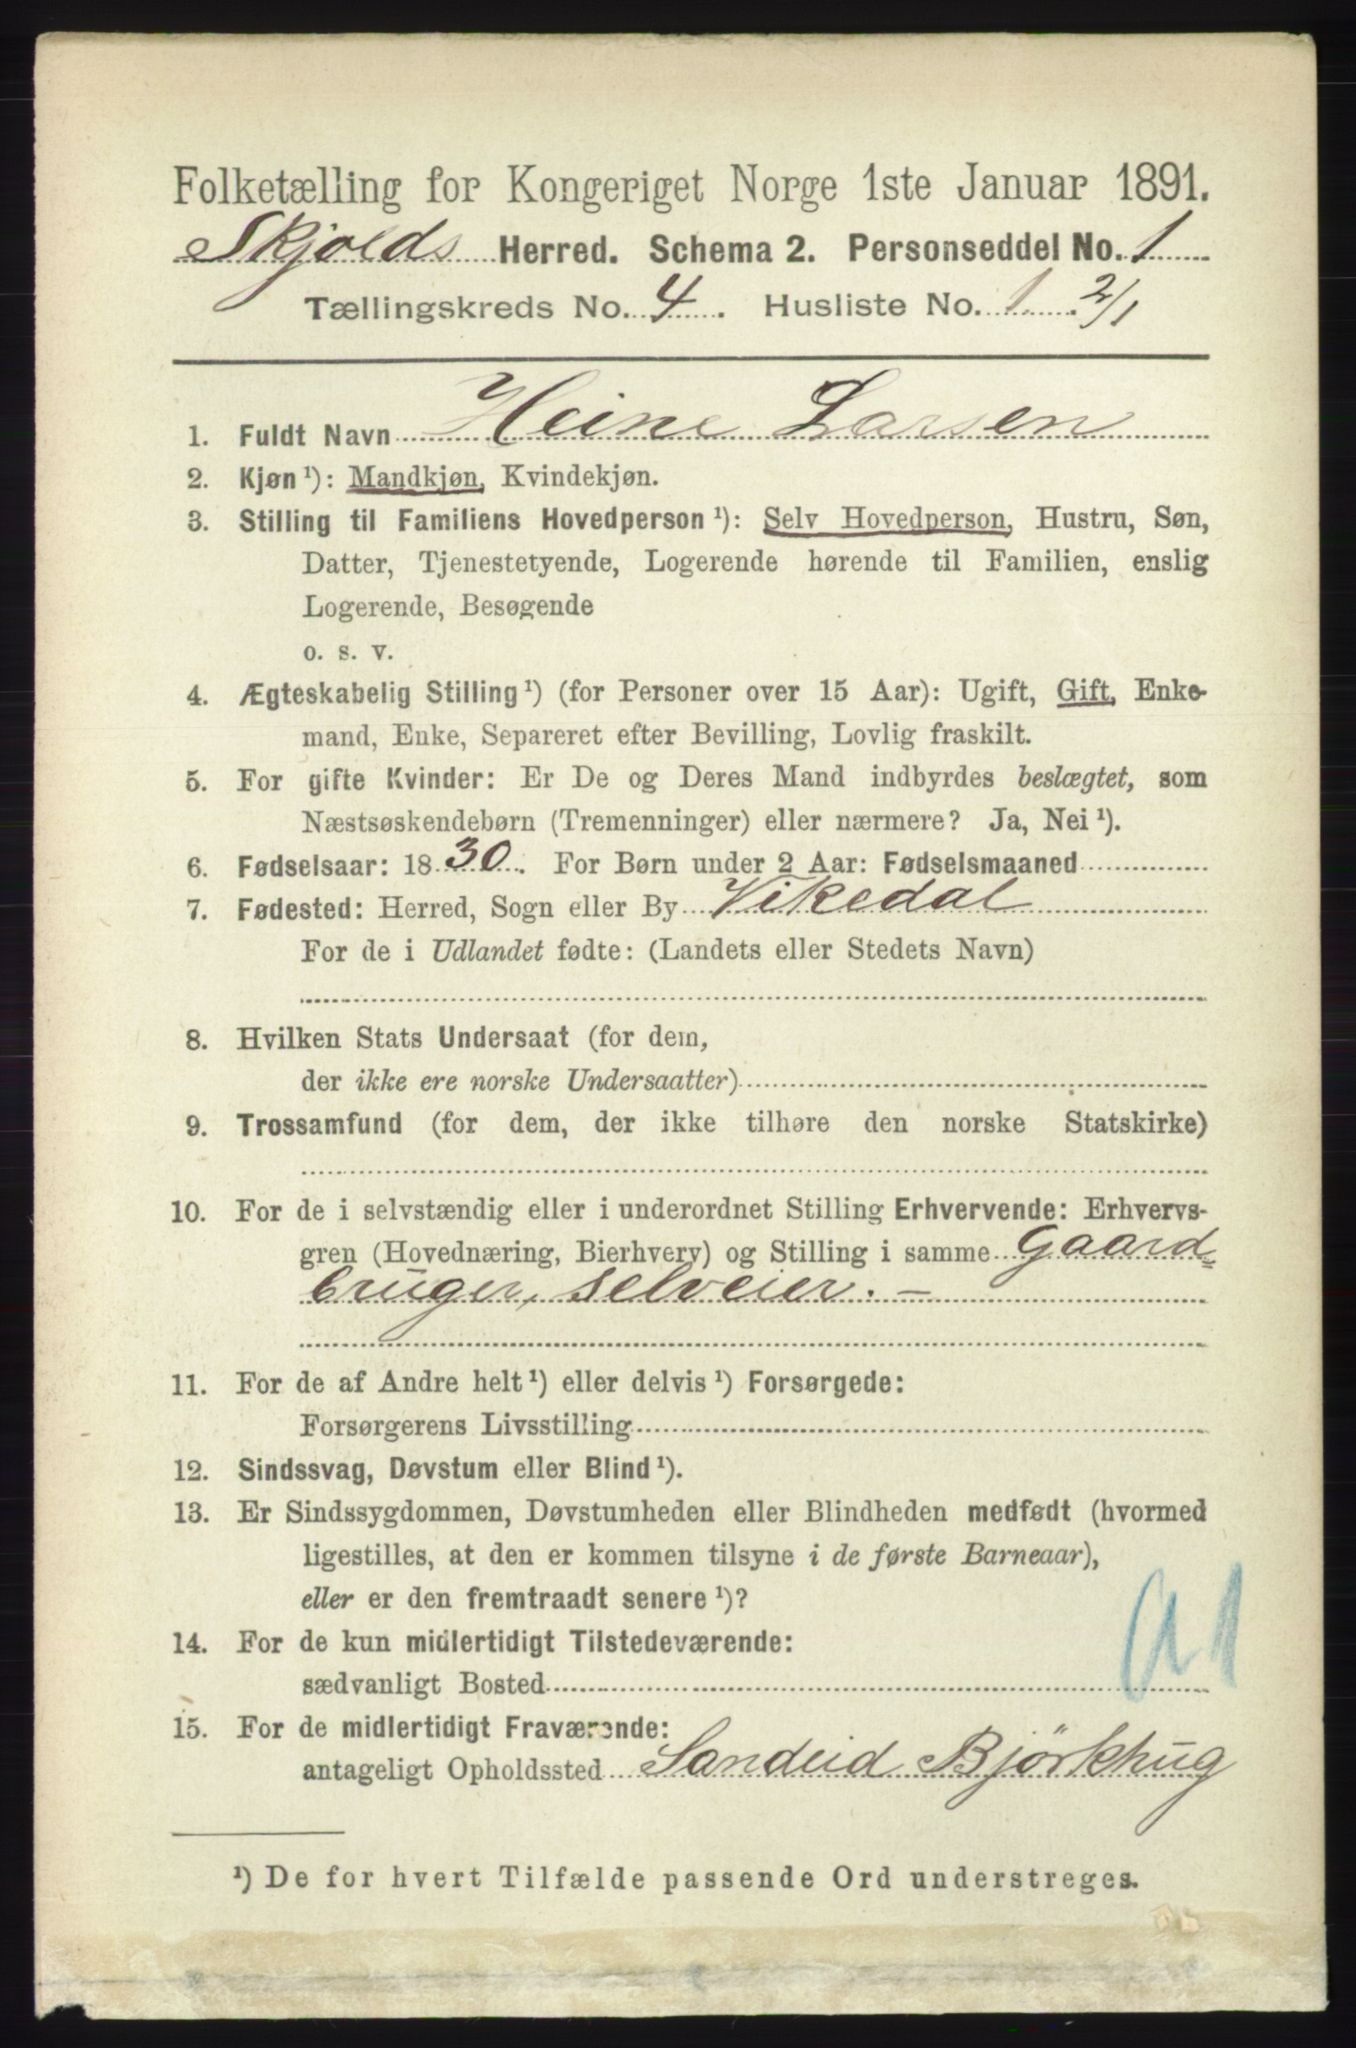 Folketælling for Kongeriget Norge 1ste Januar 1891.
Skjolds Herred. Schema 2. Personseddel No. 1
Tællingskreds No. 4. Husliste No. 1. 2/1
1. Fuldt Navn Heine Larsen
2. Kjøn ¹): Mandkjøn, Kvindekjøn.
3. Stilling til Familiens Hovedperson ¹): Selv Hovedperson, Hustru, Søn,
Datter, Tjenestetyende, Logerende hørende til Familien, enslig
Logerende, Besøgende
o. s. v.
4. Ægteskabelig Stilling ¹) (for Personer over 15 Aar): Ugift, Gift, Enke-
mand, Enke, Separeret efter Bevilling, Lovlig fraskilt.
5. For gifte Kvinder: Er De og Deres Mand indbyrdes beslægtet, som
Næstsøskendebørn (Tremenninger) eller nærmere? Ja, Nei ¹).
6. Fødselsaar: 1830. For Børn under 2 Aar: Fødselsmaaned
7. Fødested: Herred, Sogn eller By Vikedal
For de i Udlandet fødte: (Landets eller Stedets Navn)
8. Hvilken Stats Undersaat (for dem,
der ikke ere norske Undersaatter)
9. Trossamfund (for dem, der ikke tilhøre den norske Statskirke)
10. For de i selvstændig eller i underordnet Stilling Erhvervende: Erhvervs-
gren (Hovednæring, Bierhverv) og Stilling i samme Gaard=
bruger, selveier. –
11. For de af Andre helt ¹) eller delvis ¹) Forsørgede:
Forsørgerens Livsstilling
12. Sindssvag, Døvstum eller Blind ¹).
13. Er Sindssygdommen, Døvstumheden eller Blindheden medfødt (hvormed
ligestilles, at den er kommen tilsyne i de første Barneaar),
eller er den fremtraadt senere ¹)?
14. For de kun midlertidigt Tilstedeværende:
sædvanligt Bosted
a1
15. For de midlertidigt Fraværende:
antageligt Opholdssted Sandeid Bjørkhug
¹) De for hvert Tilfælde passende Ord understreges.